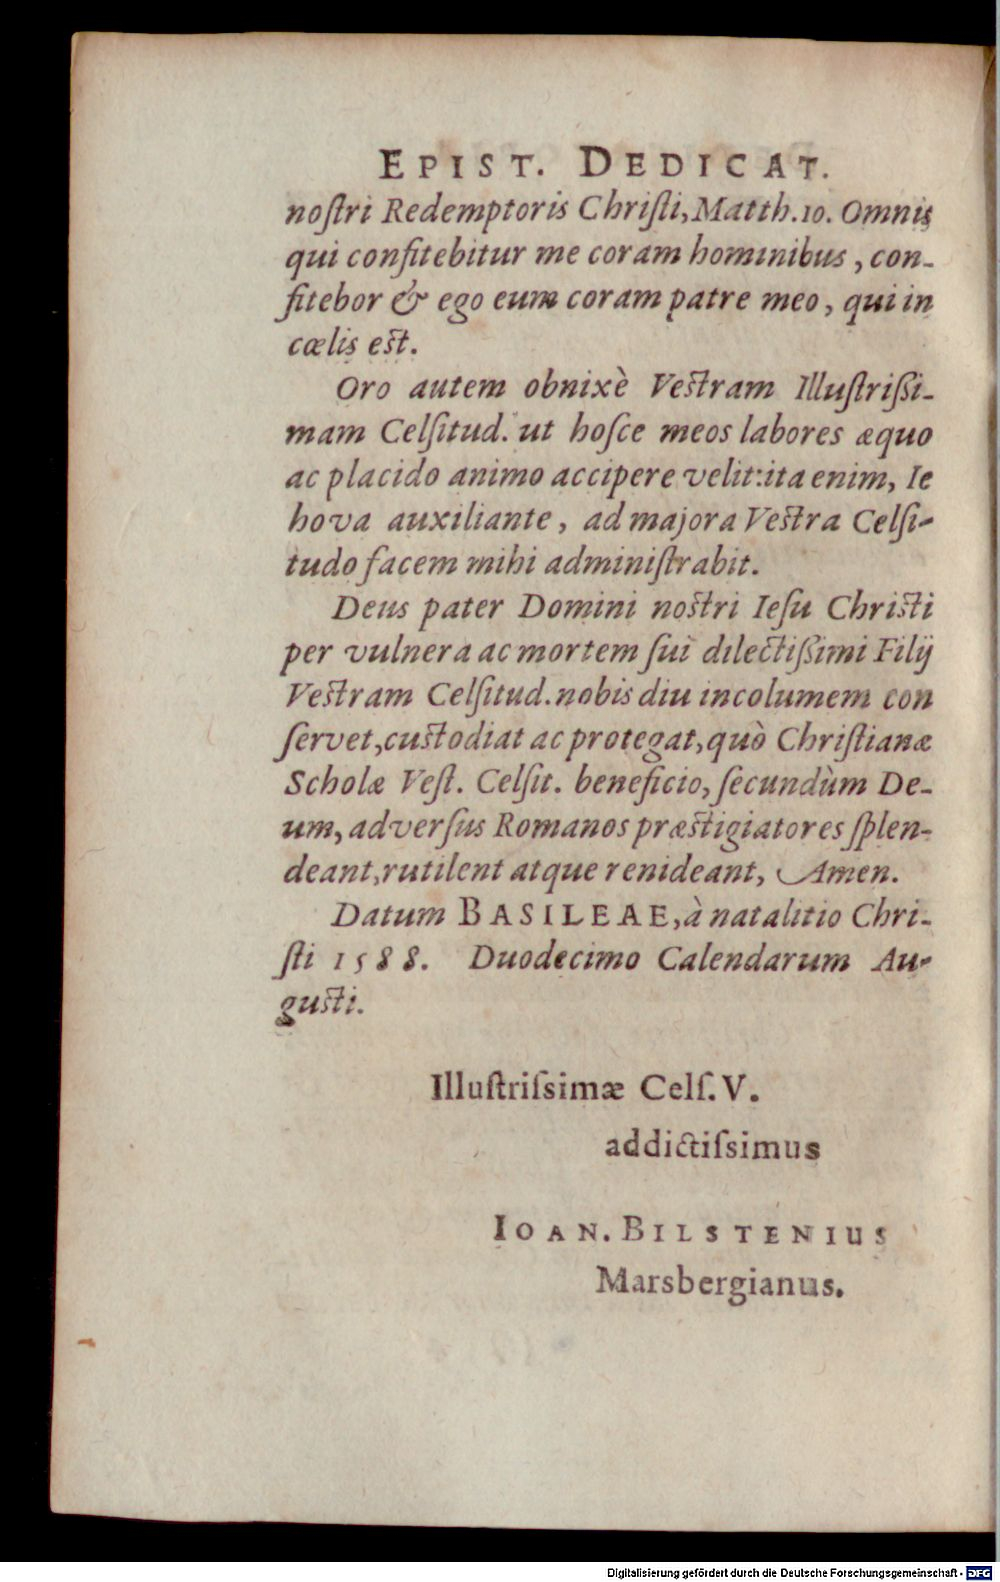 EPIST. DEDICAT.
noſtri Redemptoris Chriſti, Matth.10. Omnis
qui confitebitur me coram hominibus, con-
fitebor & ego eum coram patre meo, qui in
cœlis est.
Oro autem obnixè Vestram Illuſtrißi-
mam Celſitud. ut hoſce meos labores æquo
ac placido animo accipere velit: ita enim, Ie
hova auxiliante, ad majora Vestra Celſi-
tudo facem mihi adminiſtrabit.
Deus pater Domini nostri Ieſu Christi
per vulnera ac mortem ſui dilectißimi Filij
Vestram Celſitud. nobis diu incolumem con
ſervet, custodiat ac protegat, quò Chriſtianæ
Scholæ Veſt. Celſit. beneficio, ſecundùm De-
um, adverſus Romanos præstigiatores ſplen-
deant, rutilent atque renideant, Amen.
Datum BASILEAE, à natalitio Chri-
ſti 1588. Duodecimo Calendarum Au-
gusti.
Illuſtriſsimæ Celſ. V.
addictiſsimus
IOAN. BILSTENIUS
Marsbergianus.
Digitalisierung gefördert durch die Deutsche Forschungsgemeinschaft - DFG